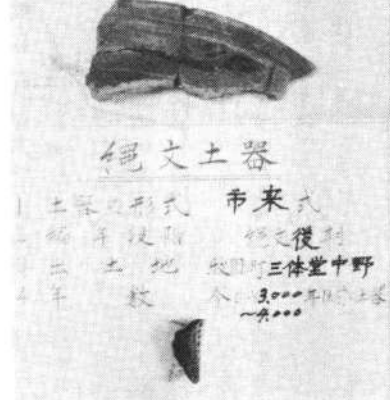 縄文土器
1 土器の形式 市来式
2 編年段階 縄文後期
3 出土地 町三体堂中野
4 年数 今 3,000年 土器
〜4,000